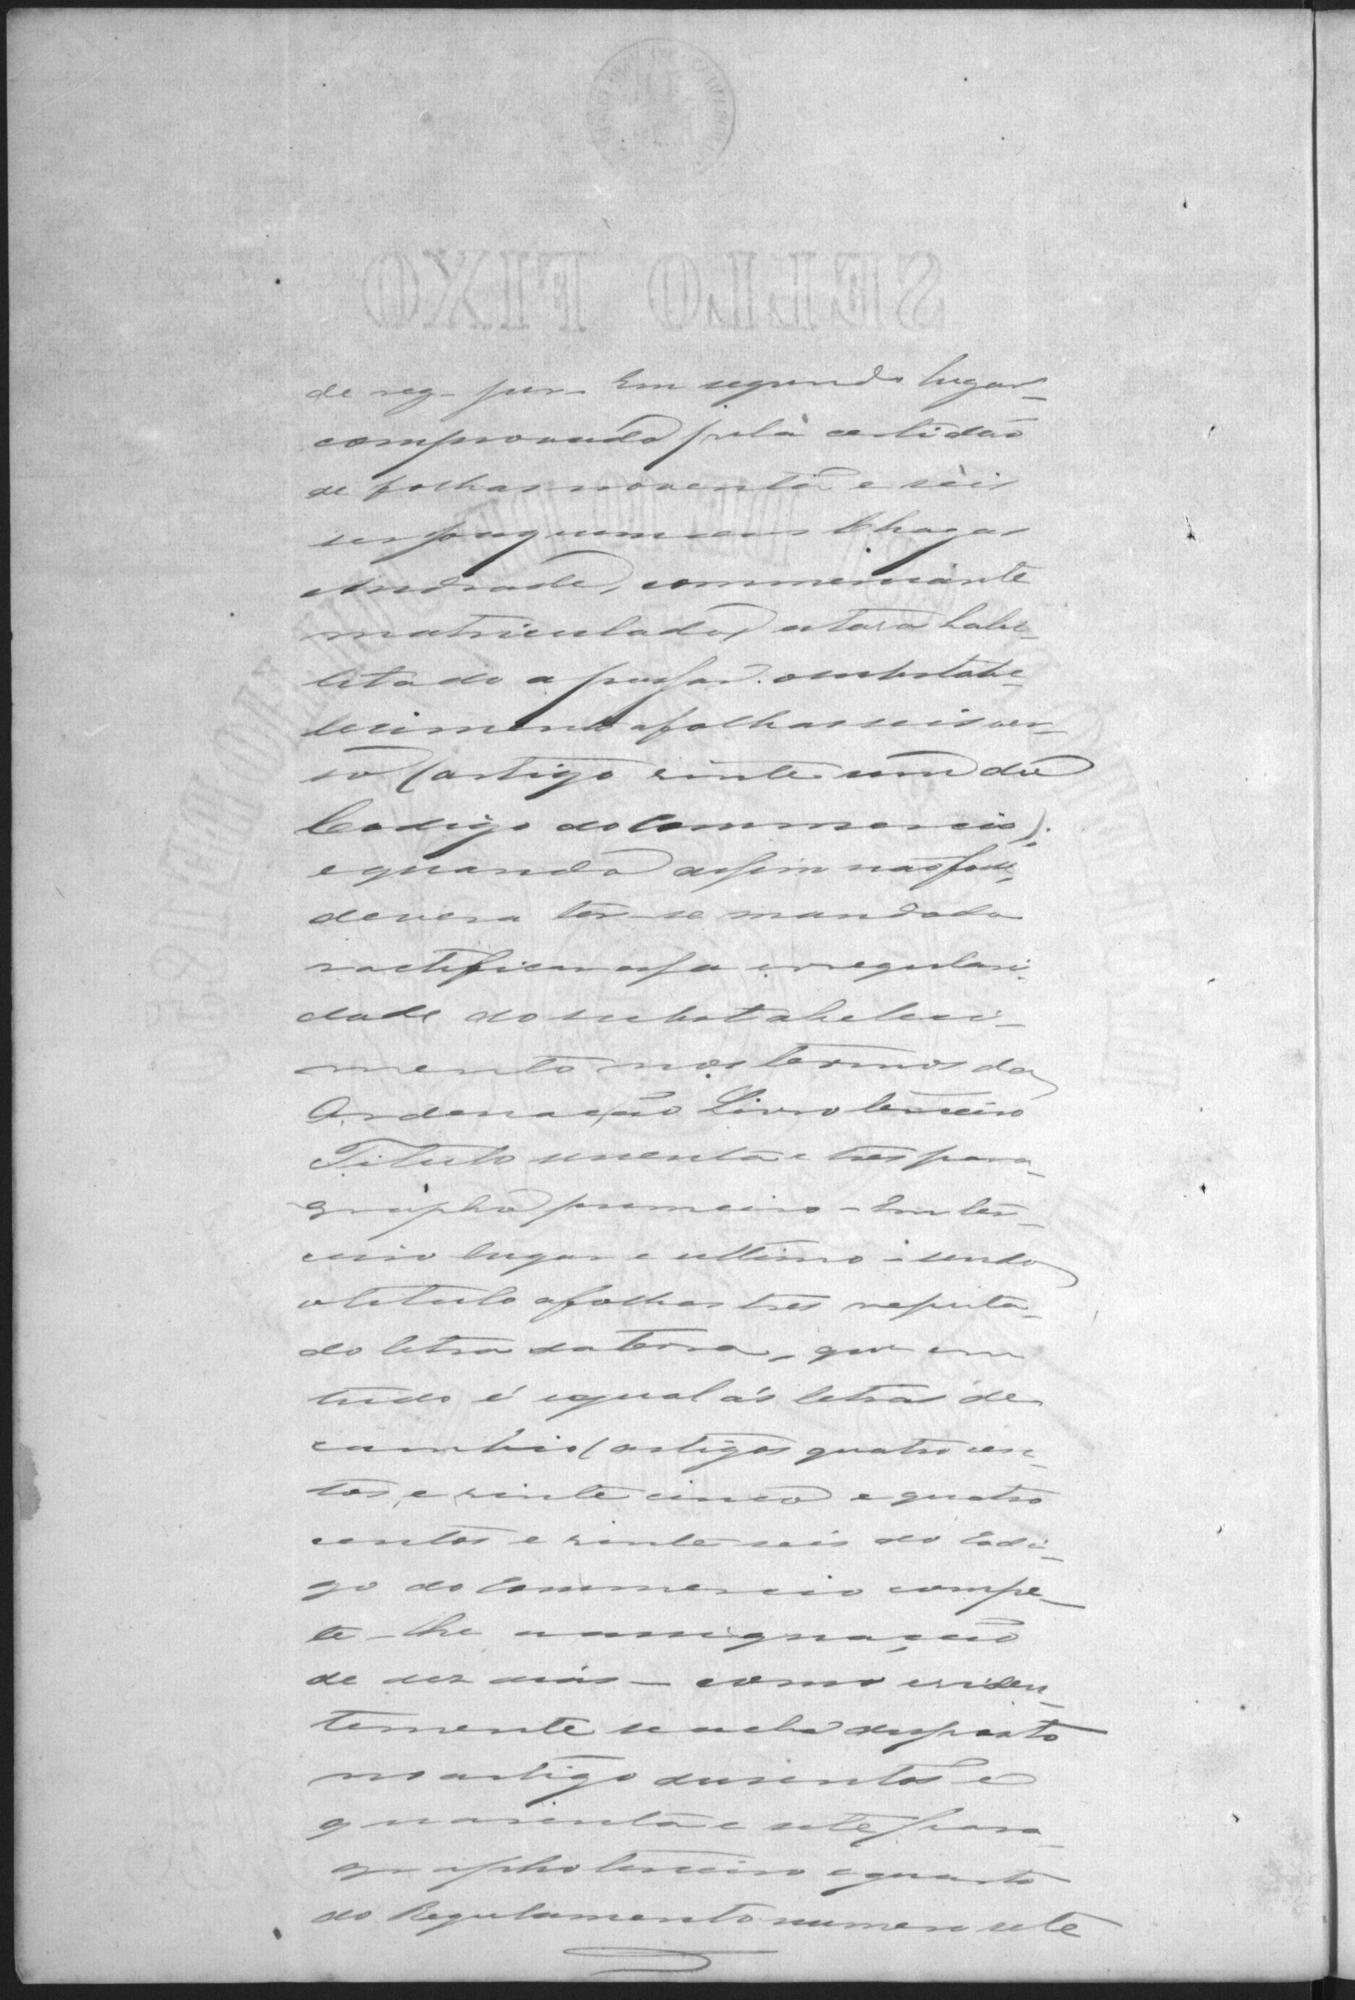 SELLO FIXO
de reg- Em segundo lugar
comprovado pela certidão
de folhas noventa e seis
ser Chagas
Andrade, commerciante
matriculado, estava habi-
litado a passar o substabe-
lecimento a folhas seis ver-
so (artigo vinte um do
Codigo do Commercio).
e quando assim não fosse,
devera ter-se mandado
ractificar essa irregulari-
dade do substabeleci-
mento nos termos da
Ordenação Livro terceiro
Titulo sessenta e tres para-
grapho primeiro - Em ter-
ceiro lugar e ultimo - sendo
o titulo a folhas tres reputa-
do letra da terra, que em
tudo é egual ás letras de
cambio (artigos quatro cen-
tos e vinte cinco e quatro
centos e vinte seis do Codi-
go do Commercio compe-
te-lhe a assignação
de dez dias - como eviden-
temente se acha disposto
no artigo dusentos e
quarenta e sete para-
grapho terceiro e quarto
do Regulamento numero sete